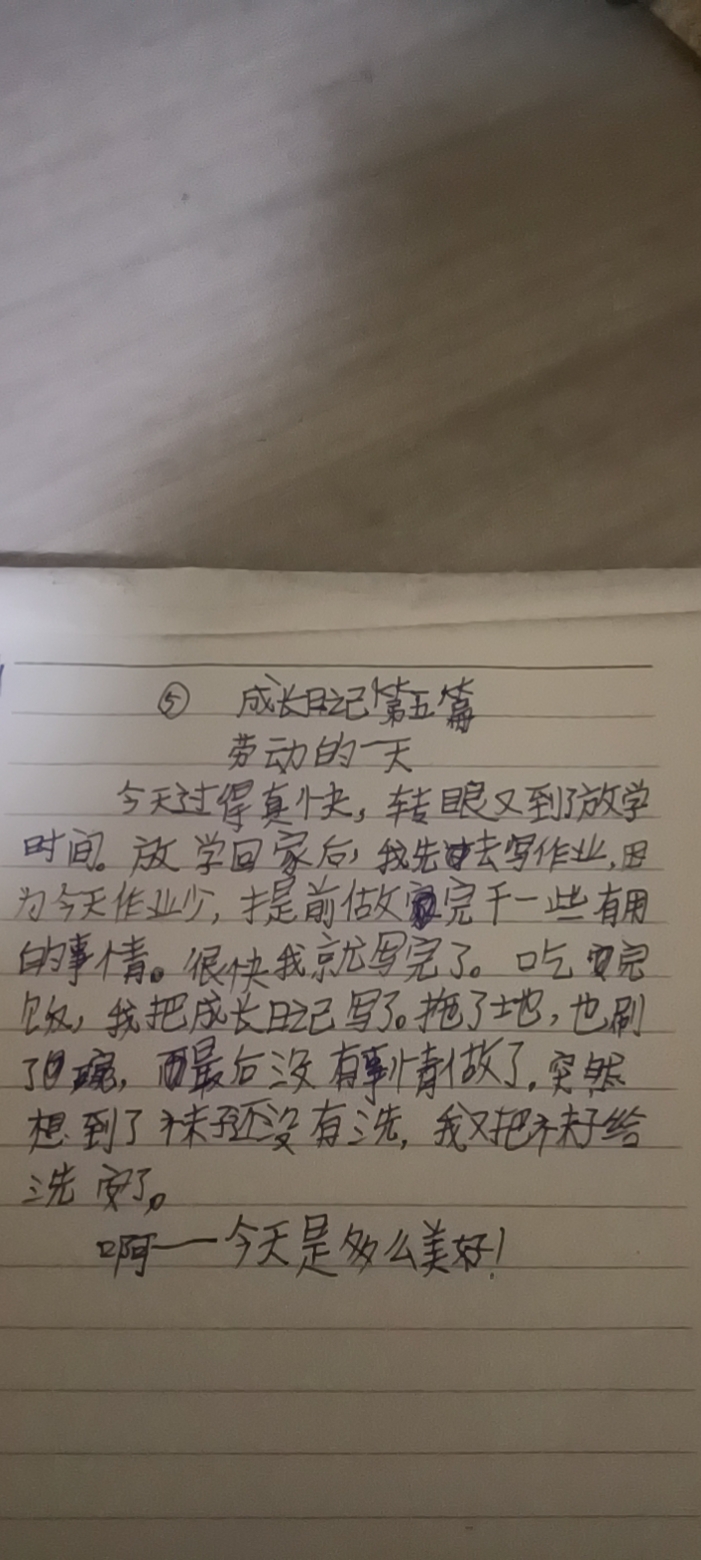 ⑤ 成长日记第五篇
劳动的一天
今天过得真快，转眼又到了放学
时间。放学回家后，我先去写作业，因
为今天作业少，提前做完干一些有用
的事情。很快我就写完了。吃完
饭，我把成长日记写了。拖了地，也刷
了碗，最后没有事情做了。突然
想到了袜子还没有洗，我又把袜子给
洗完了。
啊——今天是多么美好！